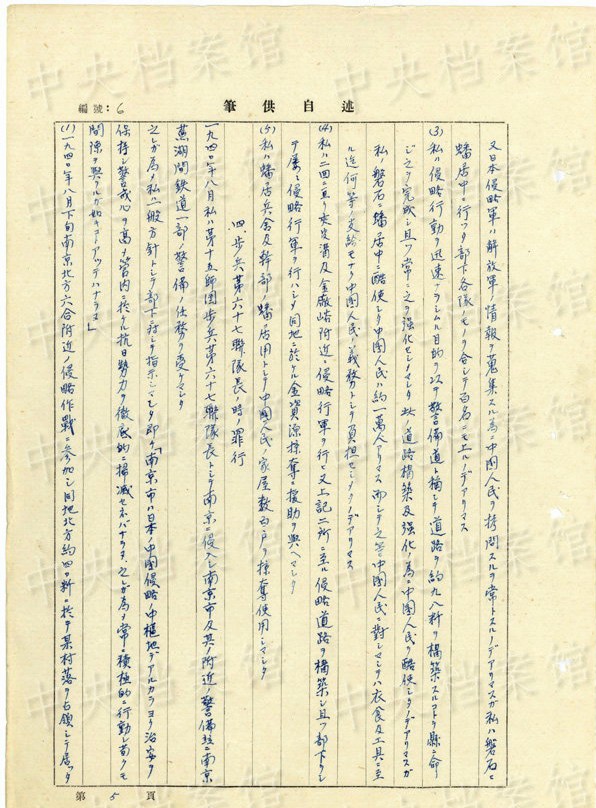 筆供自述
編號：6
又日本侵略軍ハ解放軍ノ情報ヲ蒐集スル為ニ中国人民ヲ拷問スルヲ常トスルノデアリマスガ私ハ磐石ニ
蟠居中ニ行ツタ部下各隊ノモノヲ合シテ百名ニモ上ルノデアリマス
(3)私ハ侵略行動ヲ迅速ナラシムル目的ヲ以テ警備道ト稱シタ道路ヲ約九八粁ヲ構築スルコトヲ縣ニ命
ジ之ヲ完成シ且ツ常ニ之ヲ強化セシメマシタ 此ノ道路構築及強化ノ為ニ中国人民ヲ酷使シタノデアリマスガ
私ノ磐石ニ蟠居中ニ酷使シタ中国人民ハ約一萬人デアリマス 而シテ之等中国人民ニ對シマシテハ衣食及工具ニ至
ル迄何等ノ支給モナク中国人民ノ義務トシテ負担セシメタノデアリマス
(4)私ハ二回ニ亘リ夾皮溝及金廠峪附近ノ侵略行軍ヲ行ヒ又上記二所ニ至ル侵略道路ヲ構築シ且ツ部下ヲシ
テ屡々侵略行軍ヲ行ハシメ同地ニ於ケル金資源掠奪ノ援助ヲ與ヘマシタ
(5)私ハ蟠居兵舎及幹部ノ蟠居用トシテ中国人民ノ家屋数百戸ヲ掠奪使用シマシタ
四、歩兵第六十七聯隊長ノ時ノ罪行
一九四〇年八月私ハ第十五師団歩兵第六十七聯隊長トシテ南京ニ侵入シ南京市及其ノ附近ノ警備並ニ南京
蕪湖間鉄道一部ノ警備ノ任務ヲ受ケマシタ
之レガ為メ私ハ一般方針トシテ部下ニ対シテ指示シマシタ 即チ「南京市ハ日本ノ中国侵略ノ中樞地デアルカラヨク治安ヲ
保持シ警戒心ヲ高メ管内ニ於ケル抗日勢力ヲ徹底的ニ掃滅セネバナラヌ、之レガ為メ常ニ積極的ニ行動シ苟クモ
間隙ヲ與ヘルガ如キコトアツテハナラヌ」
(1)一九四〇年八月下旬南京北方六合附近ノ侵略作戦ニ参加シ同地北方約四〇粁ニ於テ某村落ヲ占領シテ居ツタ
第 5 頁
中央档案馆